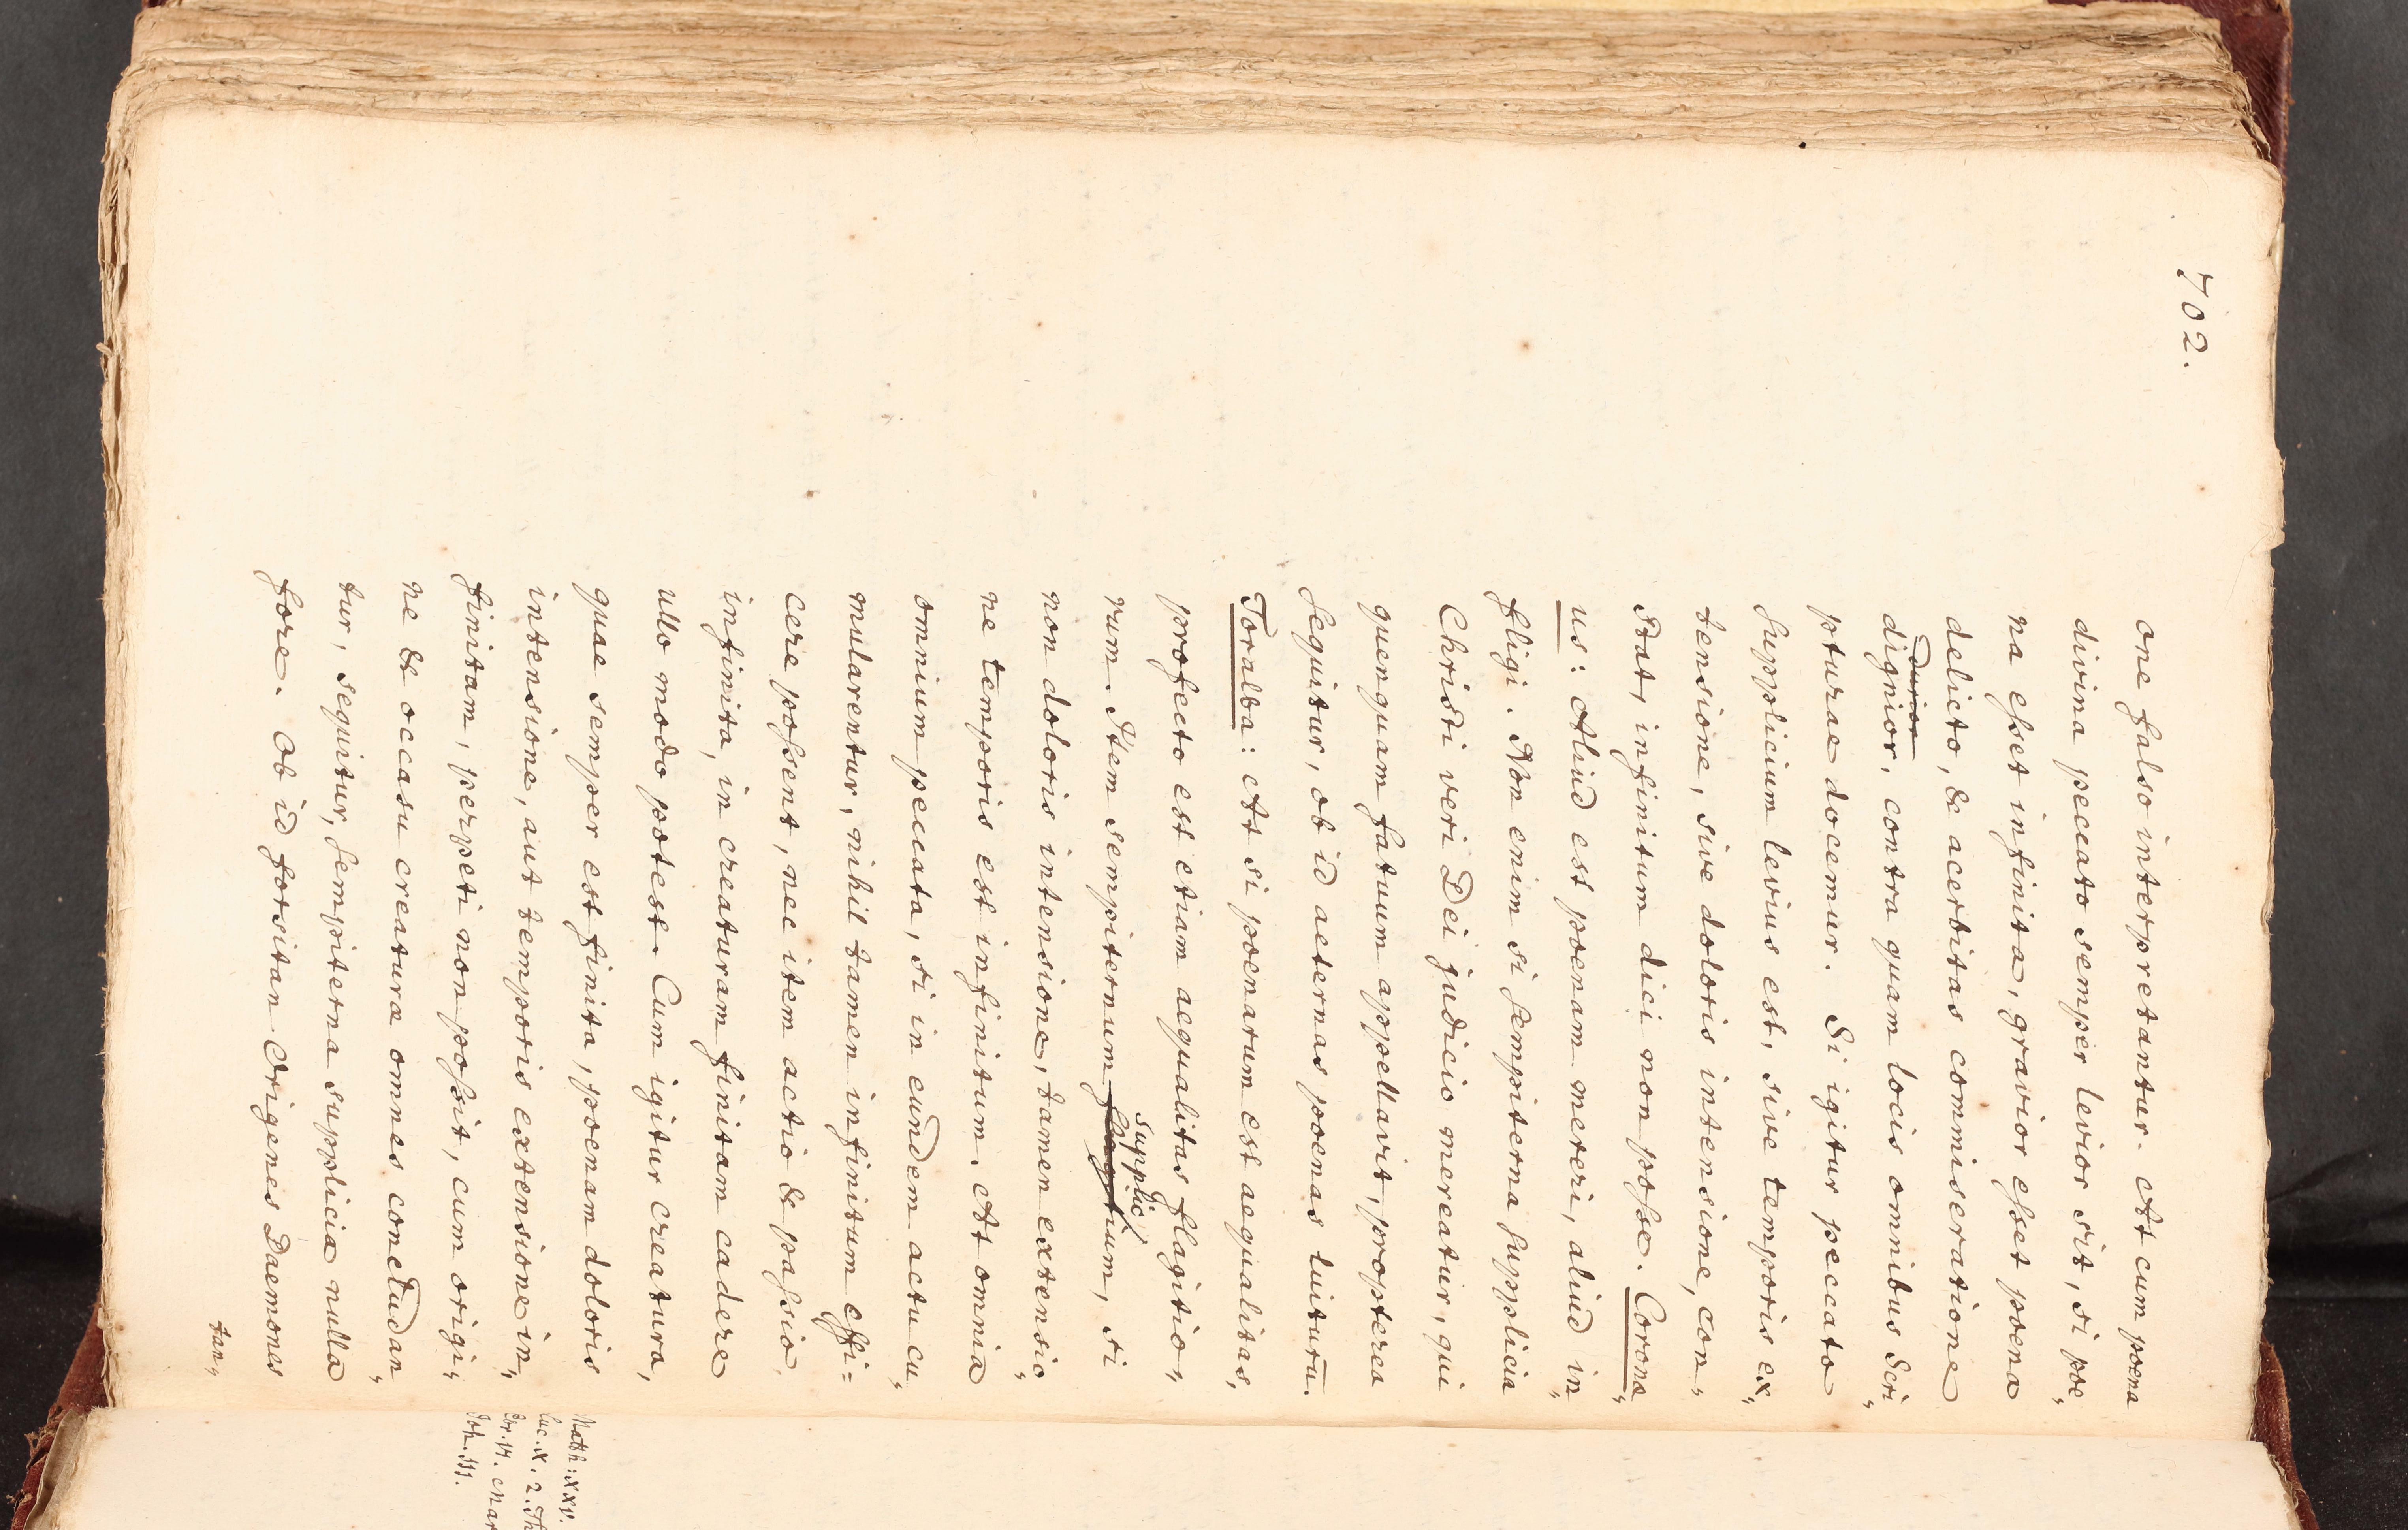 702.
one falso interpretantur. At cum poena
divina peccato semper levior sit, si poe„
na esset infinita, gravior esset poena
delicto, & acerbitas commiseratione
durior
dignior, contra quam locis omnibus Scri„
pturae docemur. Si igitur peccato
supplicium levius est, sive temporis ex„
tensione, sive doloris intensione, con„
stat, infinitum dici non posse. Corona„
us: Aliud est poenam mereri, aliud in„
fligi. Non enim si sempiterna supplicia
Christi veri Dei judicio mereatur, qui
quenquam fatuum appellavit, propterea
sequitur, ob id aeternas poenas luiturū.
Toralba: At si poenarum est aequalitas,
profecto est etiam aequalitas flagitio„
rum. Item sempiternum flagitium, si
supplic
non doloris intensione, tamen extensio„
ne temporis est infinitum. At omnia
omnium peccata, si in eundem actu cu„
mularentur, nihil tamen infinitum effi=
cere possent, nec item actio & passio
infinita, in creaturam finitam cadere
ullo modo potest. Cum igitur creatura,
quae semper est finita, poenam doloris
intensione, aut temporis extensione in„
finitam, perpeti non possit, cum origi„
ne & occasu creaturæ omnes concludan„
tur, sequitur, sempiterna supplicia nulla
fore. Ob id forsitan Origenes Daemones
tan„
Matth: XXV.
Luc. X. 2. Th
Mar
Joh. III.